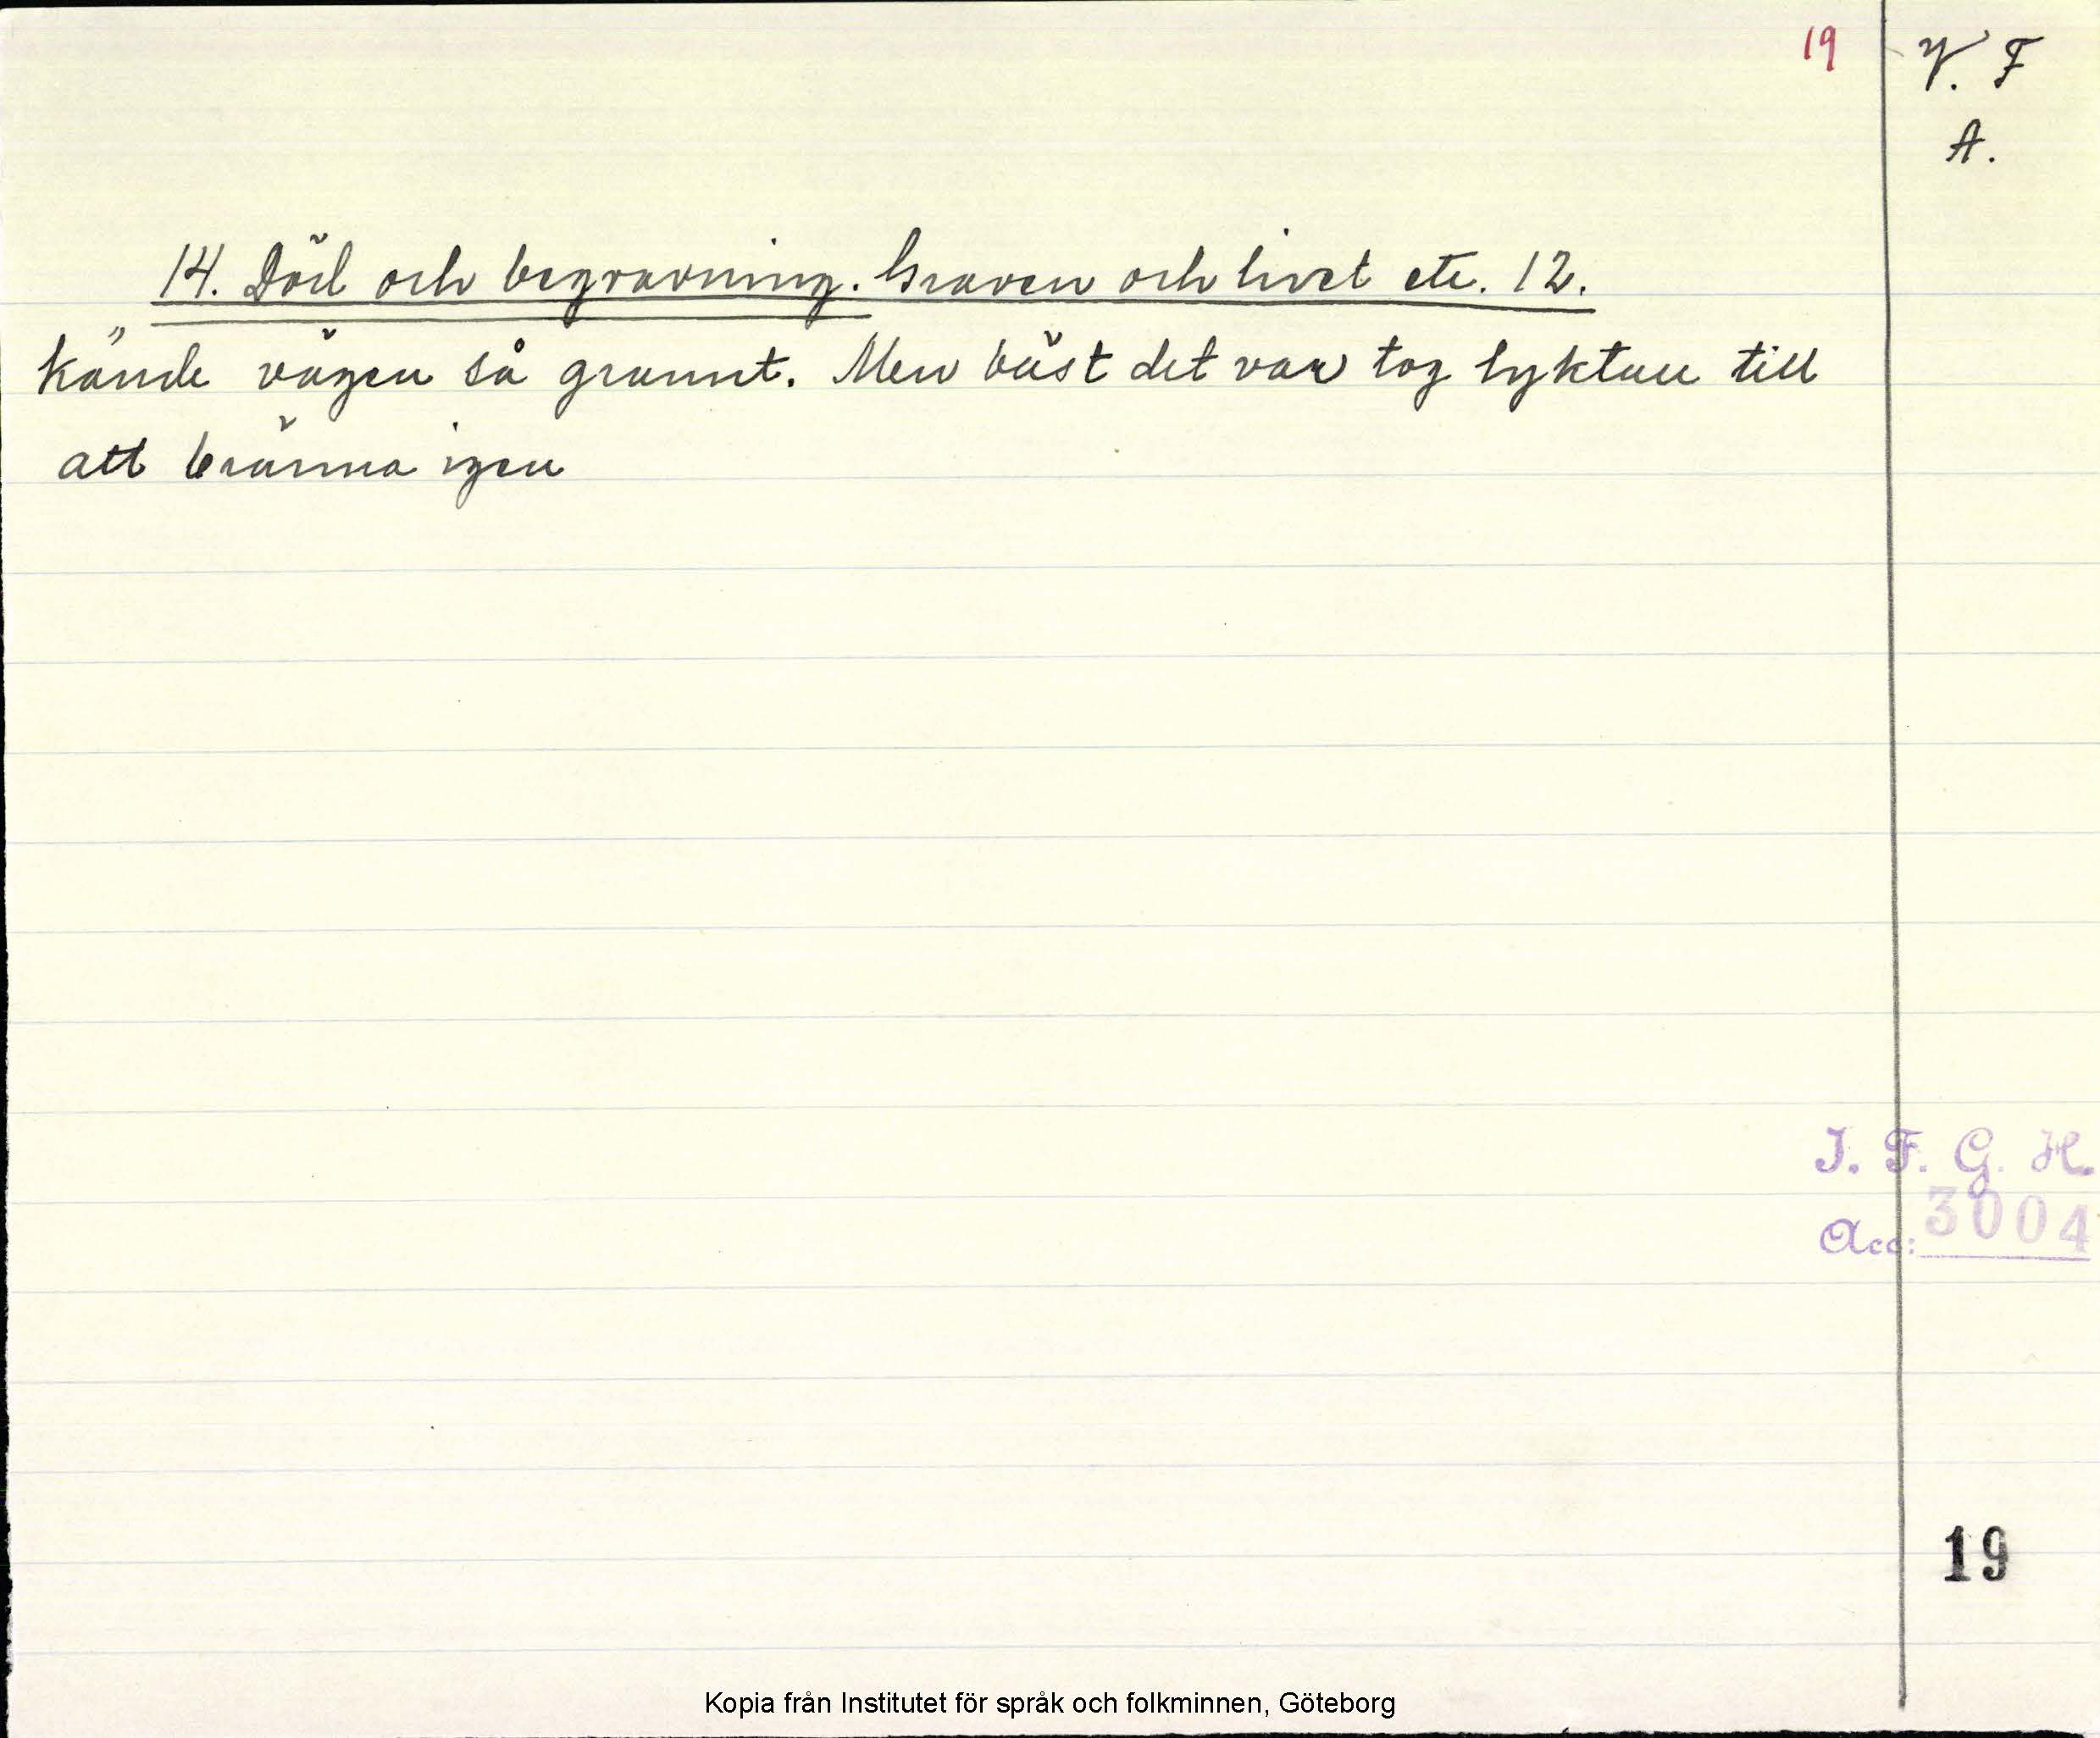 19
V. F
A.
14. Död och begravning. Graven och livet etc. 12.
kände vägen så grannt. Men bäst det var tog lyktan till
att bränna igen
I. F. G. H.
Acc: 3004
19
Kopia från Institutet för språk och folkminnen, Göteborg